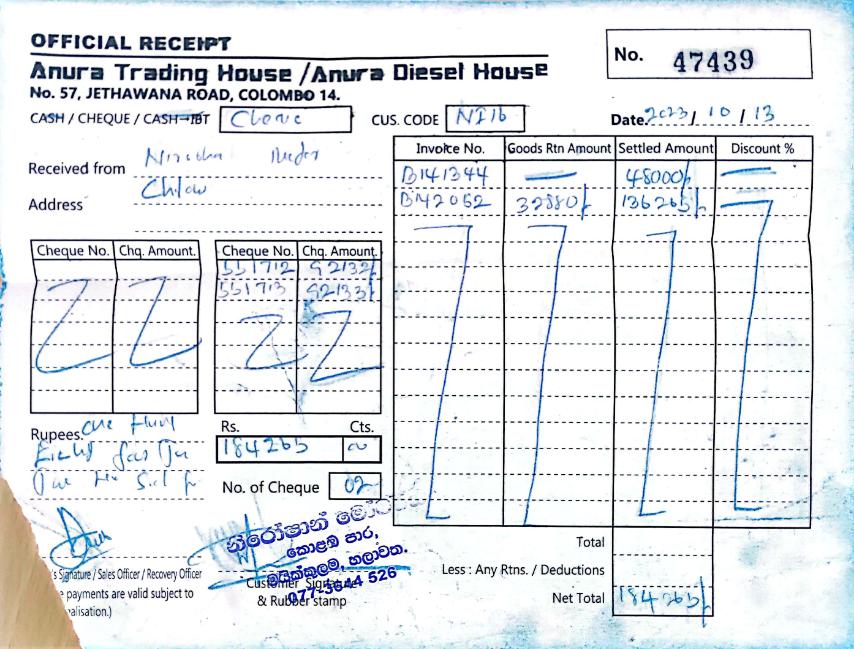 OFFICIAL RECEIPT
No. 47439
Anura Trading House /Anura Diesel House
No. 57, JETHAWANA ROAD, COLOMBO 14.
CASH / CHEQUE / CASH IBT
CUS. CODE NI16
Date. 2023 / 10 / 13
Invoice No. Goods Rtn Amount Settled Amount Discount %
B141344 48000/-
B142052 32880/- 136265/-
Received from
Address Chilaw
Cheque No. Chq. Amount. Cheque No. Chq. Amount.
551712 92132/-
551713 92133/-
Rs. Cts.
Rupees. One
184265 00
No. of Cheque 02
Total
Less : Any Rtns. / Deductions
Net Total 184265/-
නිරෝෂාන්
කොළඹ පාර,
මයික්කුලම, හලාවත.
077-3644 526
's Signature / Sales Officer / Recovery Officer
Customer Signature
& Rubber stamp
e payments are valid subject to
alisation.)